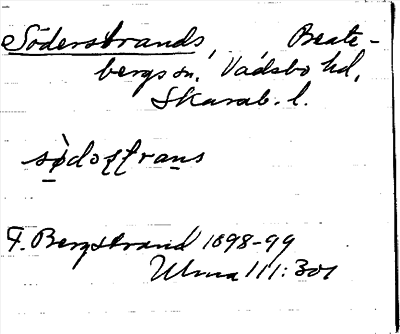 Söderstrands, Beate-
bergs sn, Vadsbo hd,
Skarab. l.
sø̀doʃtrans
F. Bergstrand 1898-99
Ulma 111:301